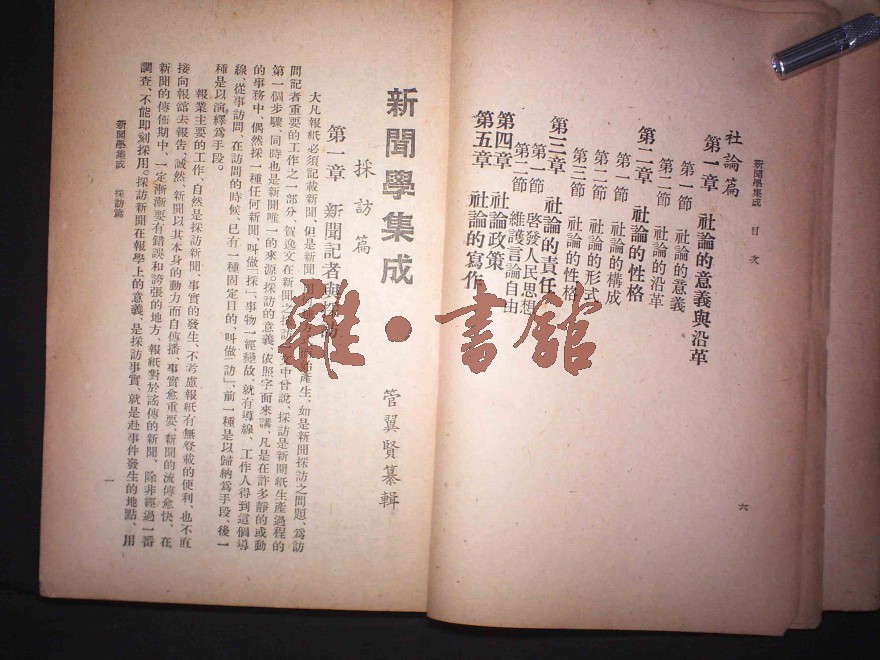 新聞學集成 目次
六
社論篇
第一章 社論的意義與沿革
第一節 社論的意義
第二節 社論的沿革
第二章 社論的性格
第一節 社論的構成
第二節 社論的形式
第三節 社論的性格
第三章 社論的責任
第一節 啓發人民思想
第二節 維護言論自由
第四章 社論政策
第五章 社論的寫作
新聞學集成
管翼賢纂輯
採訪篇
第一章 新聞記者與採訪
大凡報紙必須記載新聞、但是新聞
產生、如是新聞採訪之問題、爲訪
問記者重要的工作之一部分、賀逸文在新聞之採訪
文中曾說、採訪是新聞紙生產過程的
第一個步驟、同時也是新聞唯一的來源。採訪的意義、依照字面來講、凡是在許多靜的或動
的事務中、偶然採一種任何新聞、叫做「採」、事物一經變故、就有導線、工作人得到這個導
線、從事訪問、在訪問的時候、已有一種固定目的、叫做「訪」、前一種是以歸納爲手段、後一
種是以演繹爲手段。
報業主要的工作、自然是採訪新聞、事實的發生、不考慮報紙有無登載的便利、也不直
接向報館去報告、誠然、新聞以其本身的動力而自傳播、事實愈重要、新聞的流傳愈快、在
新聞的傳佈期中、一定漸漸要有錯誤和誇張的地方、報紙對於謠傳的新聞、除非經過一番
調查、不能即刻採用。採訪新聞在報學上的意義、是採訪事實、就是赴事件發生的地點、用
新聞學集成 採訪篇
一
雜·書館